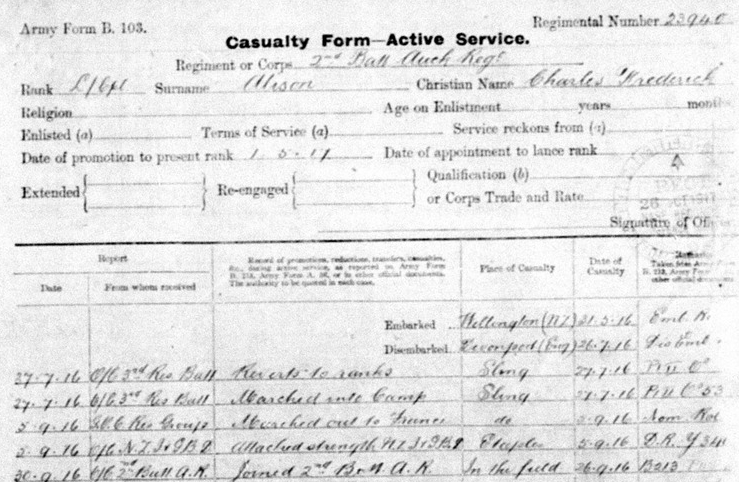 Army Form B. 103.
Regimental Number 23940
Casualty Form—Active Service.
Regiment or Corps 2nd Batt Auck Regt
Rank L/Cpl Surname Alison Christian Name Charles Frederick
Religion Age on Enlistment years months
Enlisted (a) Terms of Service (a) Service reckons from (a)
Date of promotion to present rank 1.5.17 Date of appointment to lance rank
Extended Re-engaged Qualification (b)
or Corps Trade and Rate
26
Signature of Officer
Report
Date From whom received
Record of promotions, reductions, transfers, casualties,
&c., during active service, as reported on Army Form
B. 213, Army Form A. 36, or in other official documents.
The authority to be quoted in each case.
Place of Casualty
Date of
Casualty
Remarks
Taken from Army
B. 213, Army Form
other official documents
Embarked Wellington (NZ) 31.5.16 Emb. R.
Disembarked Devonport (Eng) 26.7.16 Dis Emb.
27.7.16 O/C 3rd Res Batt Reverts to ranks Sling 27.7.16
27.7.16 O/C 3rd Res Batt Marched into Camp Sling 27.7.16 53
5.9.16 Res Group Marched out to France do 5.9.16 Nom Rol
5.9.16 O/C N.Z.I & GBD Attached strength N.Z.I & GBD Etaples 5.9.16 D.R.
30.9.16 O/C 2nd Batt A.R. Joined 2nd Batt A.R. In the field 26.9.16 B213